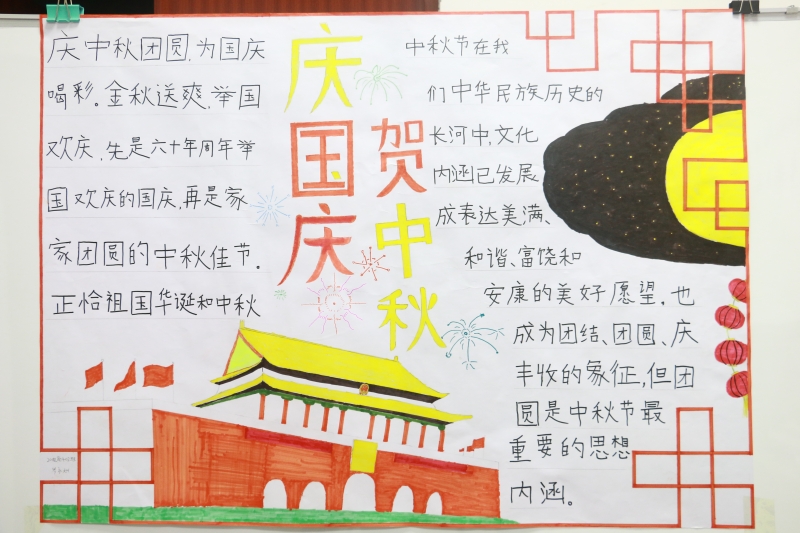 庆中秋团圆,为国庆
喝彩。金秋送爽,举国
欢庆,先是六十年周年举
国欢庆的国庆,再是家
家团圆的中秋佳节。
正恰祖国华诞和中秋
庆国庆
贺中秋
中秋节在我
们中华民族历史的
长河中,文化
内涵已发展
成表达美满、
和谐、富饶和
安康的美好愿望,也
成为团结、团圆、庆
丰收的象征,但团
圆是中秋节最
重要的思想
内涵。